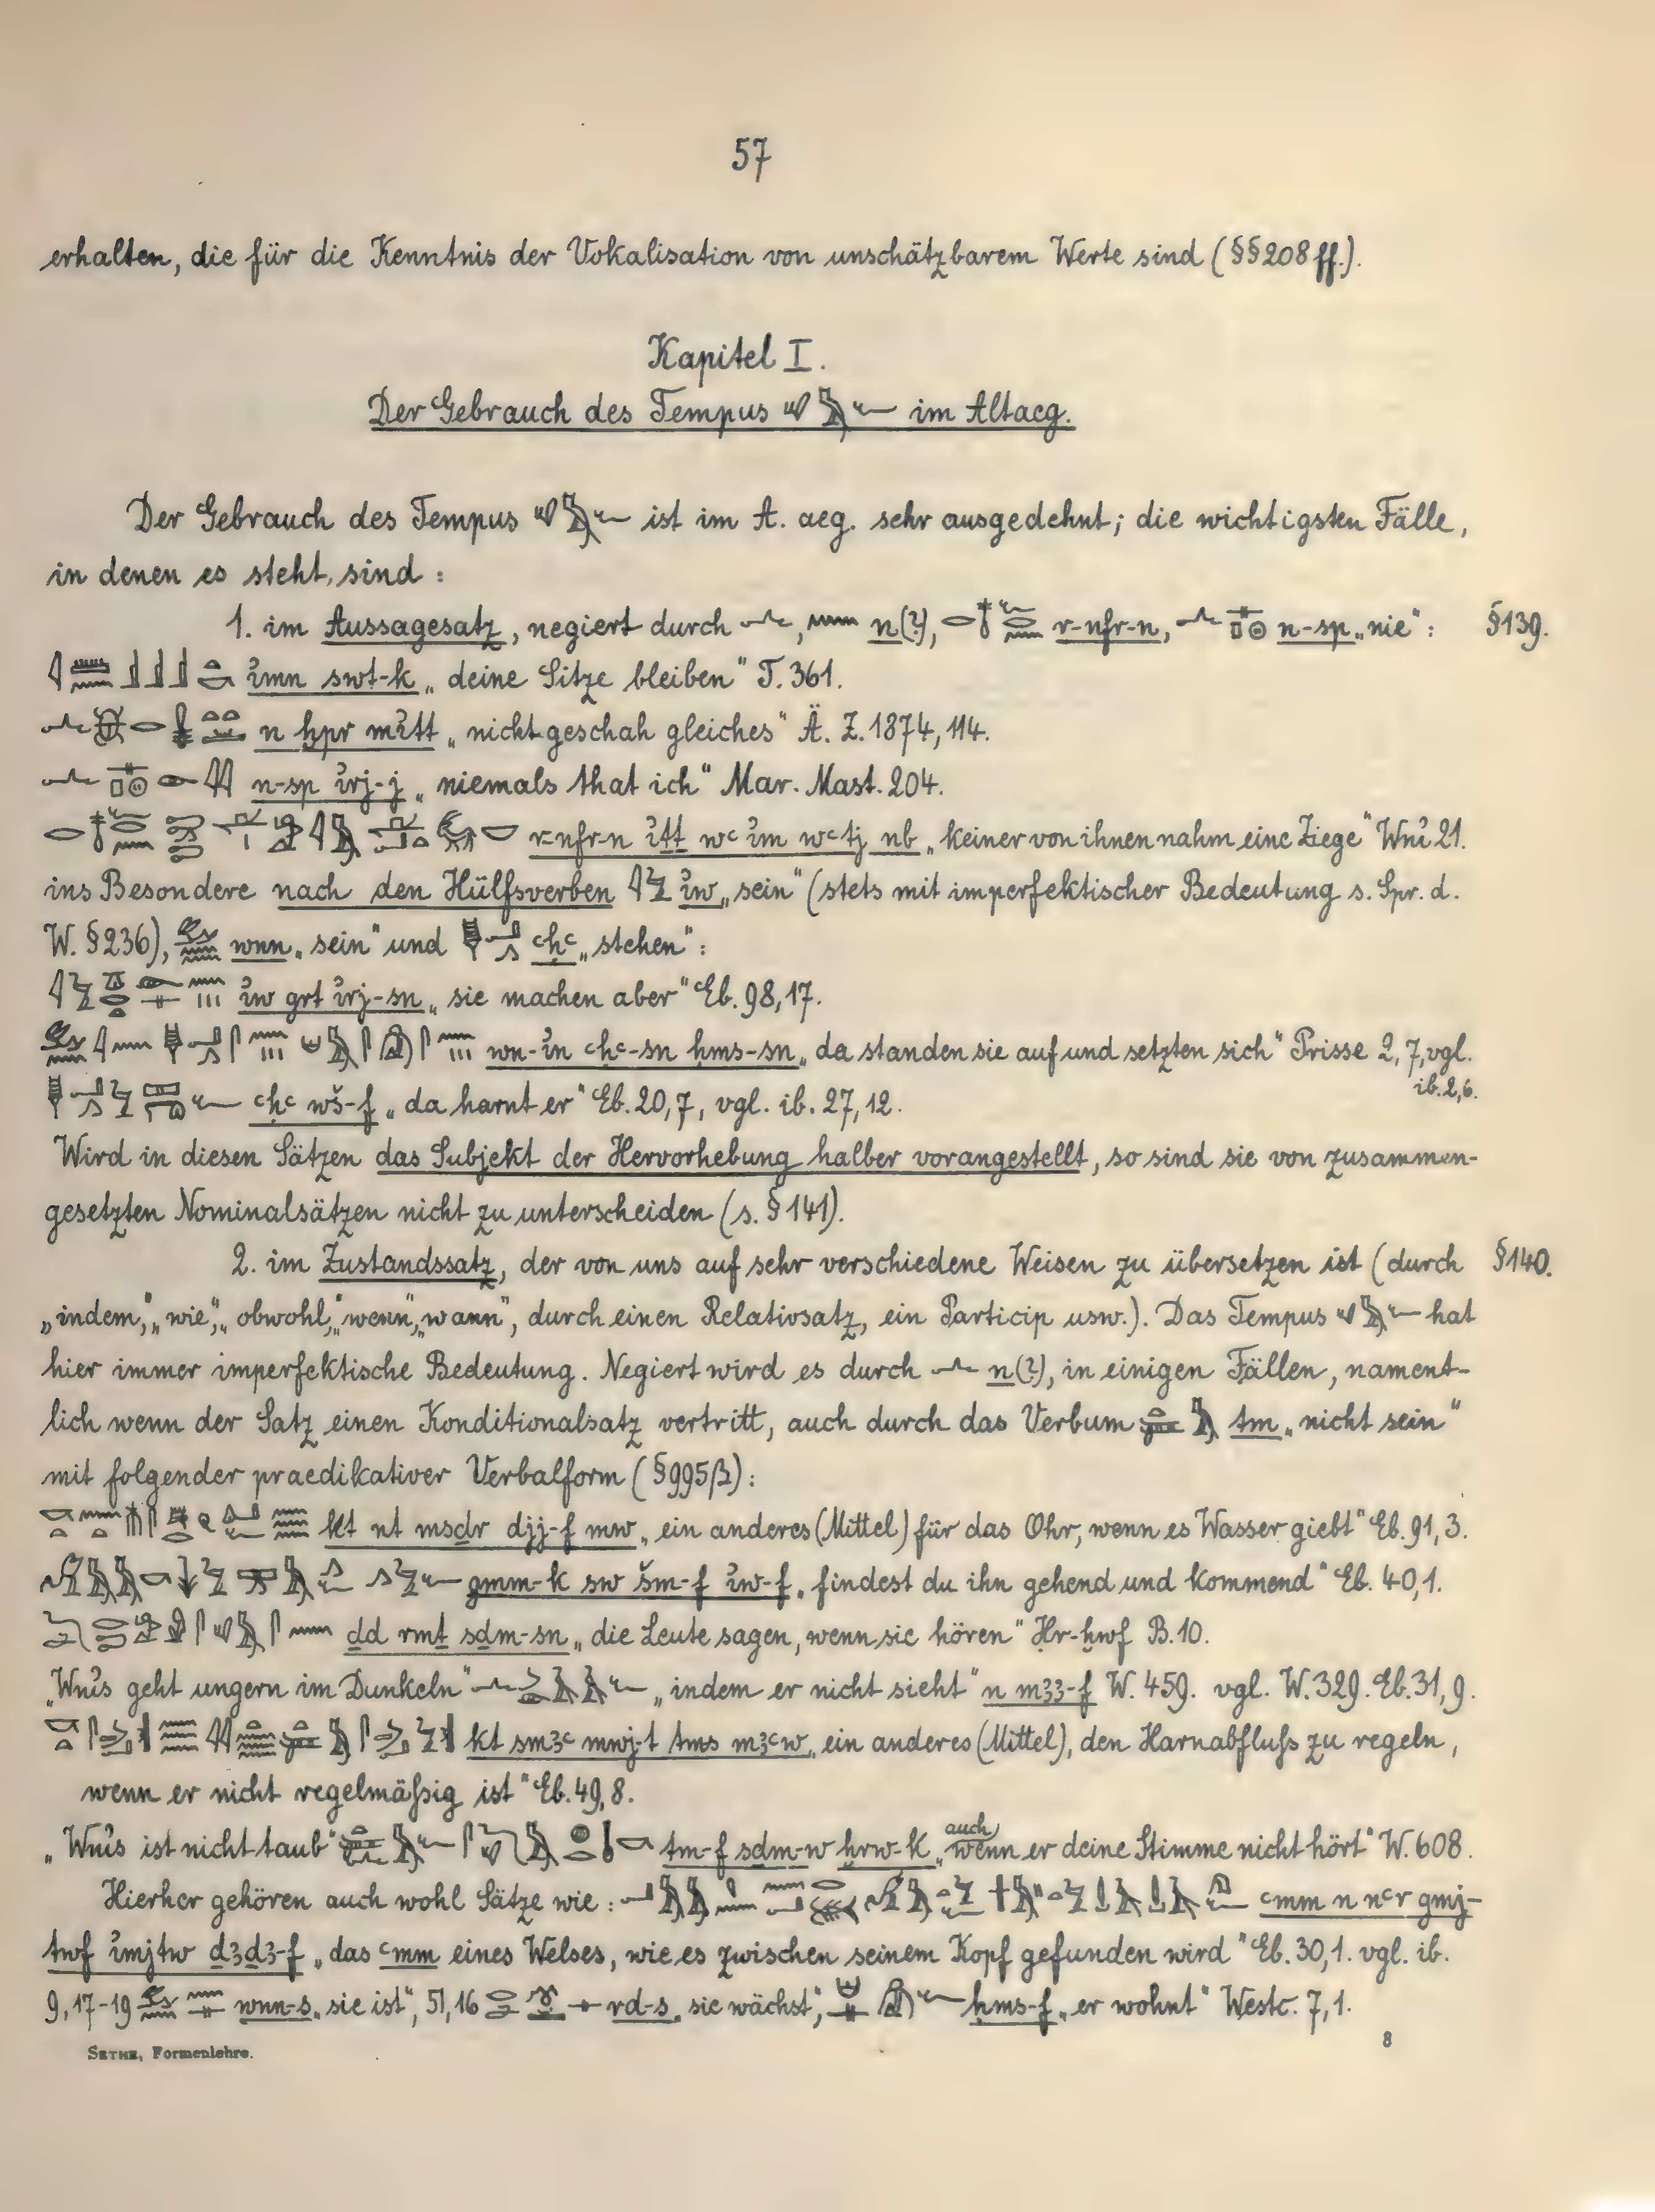 57
erhalten, die für die Kenntnis der Vokalisation von unschätzbarem Werte sind (§§208ff.).
Kapitel I.
Der Gebrauch des Tempus im Altaeg.
Der Gebrauch des Tempus ist im A. aeg. sehr ausgedehnt; die wichtigsten Fälle,
in denen es steht, sind:
1. im Aussagesatz, negiert durch , n(?), r-nfr-n, n-sp „nie“: §139.
ỉmn swt-k „deine Sitze bleiben“ T. 361.
n ḫpr mỉtt „nicht geschah gleiches“ Ä. Z. 1874, 114.
n-sp ỉrj-j „niemals that ich“ Mar. Mast. 204.
r-nfr-n ỉṯt wꜥ ỉm wꜥtj nb „keiner von ihnen nahm eine Ziege“ Wnỉ 21.
ins Besondere nach den Hülfsverben ỉw „sein“ (stets mit imperfektischer Bedeutung s. Spr. d.
W. §236), wnn „sein“ und ꜥḥꜥ „stehen“:
ỉw grt ỉrj-sn „sie machen aber“ Eb. 98, 17.
wn-ỉn ꜥḥꜥ-sn ḥms-sn „da standen sie auf und setzten sich“ Prisse 2, 7, vgl.
ib. 2, 6.
ꜥḥꜥ wš-f „da harnt er“ Eb. 20, 7, vgl. ib. 27, 12.
Wird in diesen Sätzen das Subjekt der Hervorhebung halber vorangestellt, so sind sie von zusammen-
gesetzten Nominalsätzen nicht zu unterscheiden (s. §141).
2. im Zustandssatz, der von uns auf sehr verschiedene Weisen zu übersetzen ist (durch §140.
„indem“, „wie“, „obwohl“, „wenn“, „wann“, durch einen Relativsatz, ein Particip usw.). Das Tempus hat
hier immer imperfektische Bedeutung. Negiert wird es durch n(?), in einigen Fällen, nament-
lich wenn der Satz einen Konditionalsatz vertritt, auch durch das Verbum tm „nicht sein“
mit folgender praedikativer Verbalform (§995β):
kt nt msḏr djj-f mw „ein anderes (Mittel) für das Ohr, wenn es Wasser giebt“ Eb. 91, 3.
gmm-k sw šm-f ỉw-f „findest du ihn gehend und kommend“ Eb. 40, 1.
ḏd rmṯ sḏm-sn „die Leute sagen, wenn sie hören“ Ḥr-ḫwf B. 10.
„Wnỉs geht ungern im Dunkeln“ „indem er nicht sieht“ n mꜣꜣ-f W. 459. vgl. W. 329. Eb. 31, 9.
kt smꜣꜥ mwj-t tms mꜣꜥw „ein anderes (Mittel), den Harnabfluſs zu regeln,
wenn er nicht regelmäſsig ist“ Eb. 49, 8.
„Wnỉs ist nicht taub“ tm-f sḏm-w ḫrw-k „auch wenn er deine Stimme nicht hört“ W. 608.
Hierher gehören auch wohl Sätze wie: ꜥmm n nꜥr gmj-
twf ỉmjtw ḏꜣḏꜣ-f „das ꜥmm eines Welses, wie es zwischen seinem Kopf gefunden wird“ Eb. 30, 1. vgl. ib.
9, 17-19 wnn-s „sie ist“, 51, 16 rd-s „sie wächst“, ḥms-f „er wohnt“ Westc. 7, 1.
SETHE, Formenlehre. 8